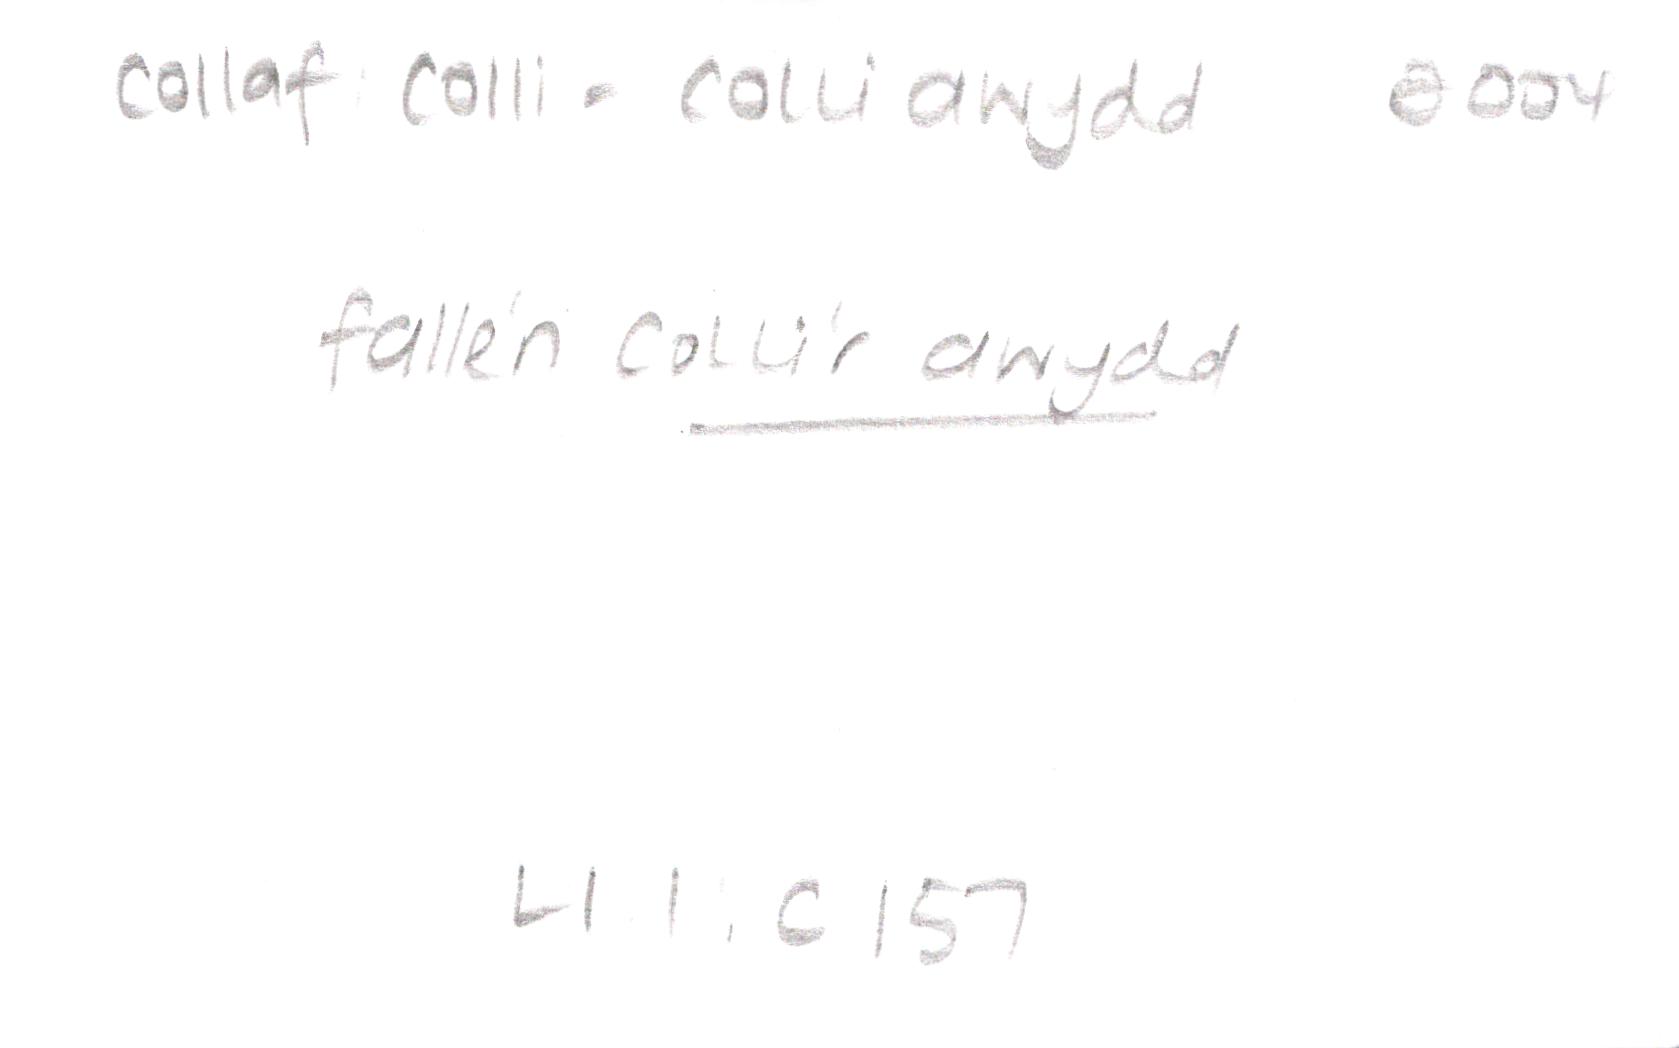 collaf: colli - colli awydd 2004
falle'n colli'r awydd
Ll 1, C 157